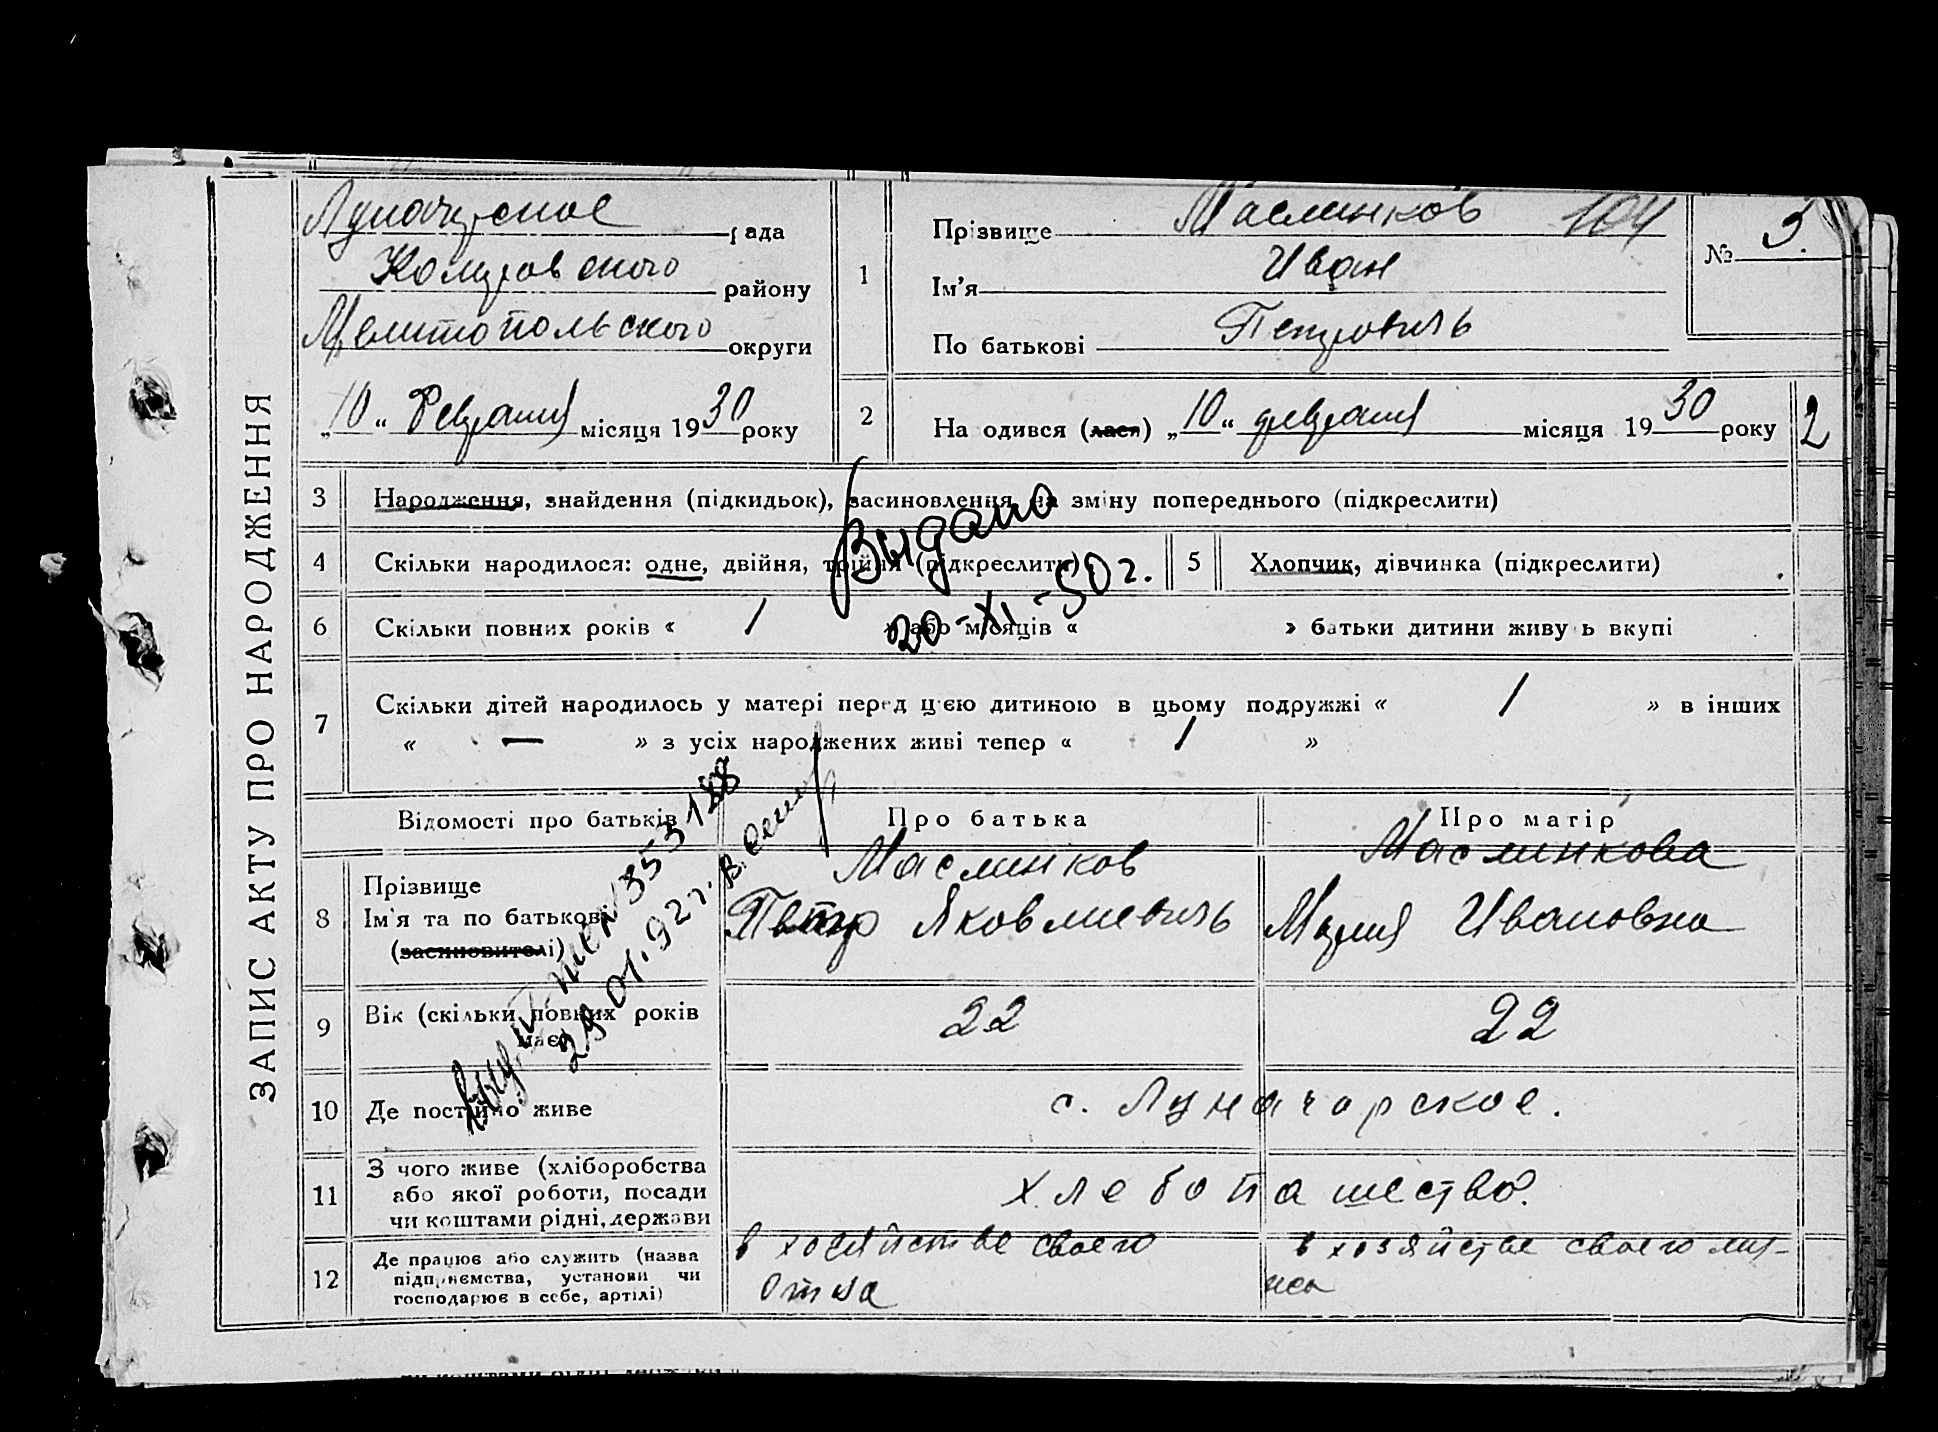 ЗАПИС АКТУ ПРО НАРОДЖЕННЯ
Луначарское рада
района району
Мелитопольского округи
„10“ Февраля місяця 1930 року
1
Прізвище Маслинков 104
Ім'я Иван
По батькові Петрович
№ 5.
2
На одився (лася) „10“ февраля місяця 1930 року
2
3 Народження, знайдення (підкидьок), засиновлення на зміну попереднього (підкреслити)
Выдано
4 Скільки народилося: одне, двійня, трійня (підкреслити)
5 Хлопчик, дівчинка (підкреслити)
20-XI-50 г.
6 Скільки повних років « 1 » або місяців « » батьки дитини живу ь вкупі
7 Скільки дітей народилось у матері перед цією дитиною в цьому подружжі « 1 » в інших
« — » з усіх народжених живі тепер « 1 »
353188
29.01.92 г.
Відомості про батьків
Про батька
Про матір
8 Прізвище
Ім'я та по батькові
(засновителі)
Маслинков
Петр Яковлиевичь
Маслинкова
Мария Ивановна
9 Вік (скільки повних років має)
22
22
10 Де постійно живе
с. Луначарское.
11 З чого живе (хліборобства
або якої роботи, посади
чи коштами рідні, держави
хлебопашество.
12 Де працює або служить (назва
підприємства, установи чи
господарює в себе, артілі)
в хозяйстве своего
отца
в хозяйстве своего му-
жа